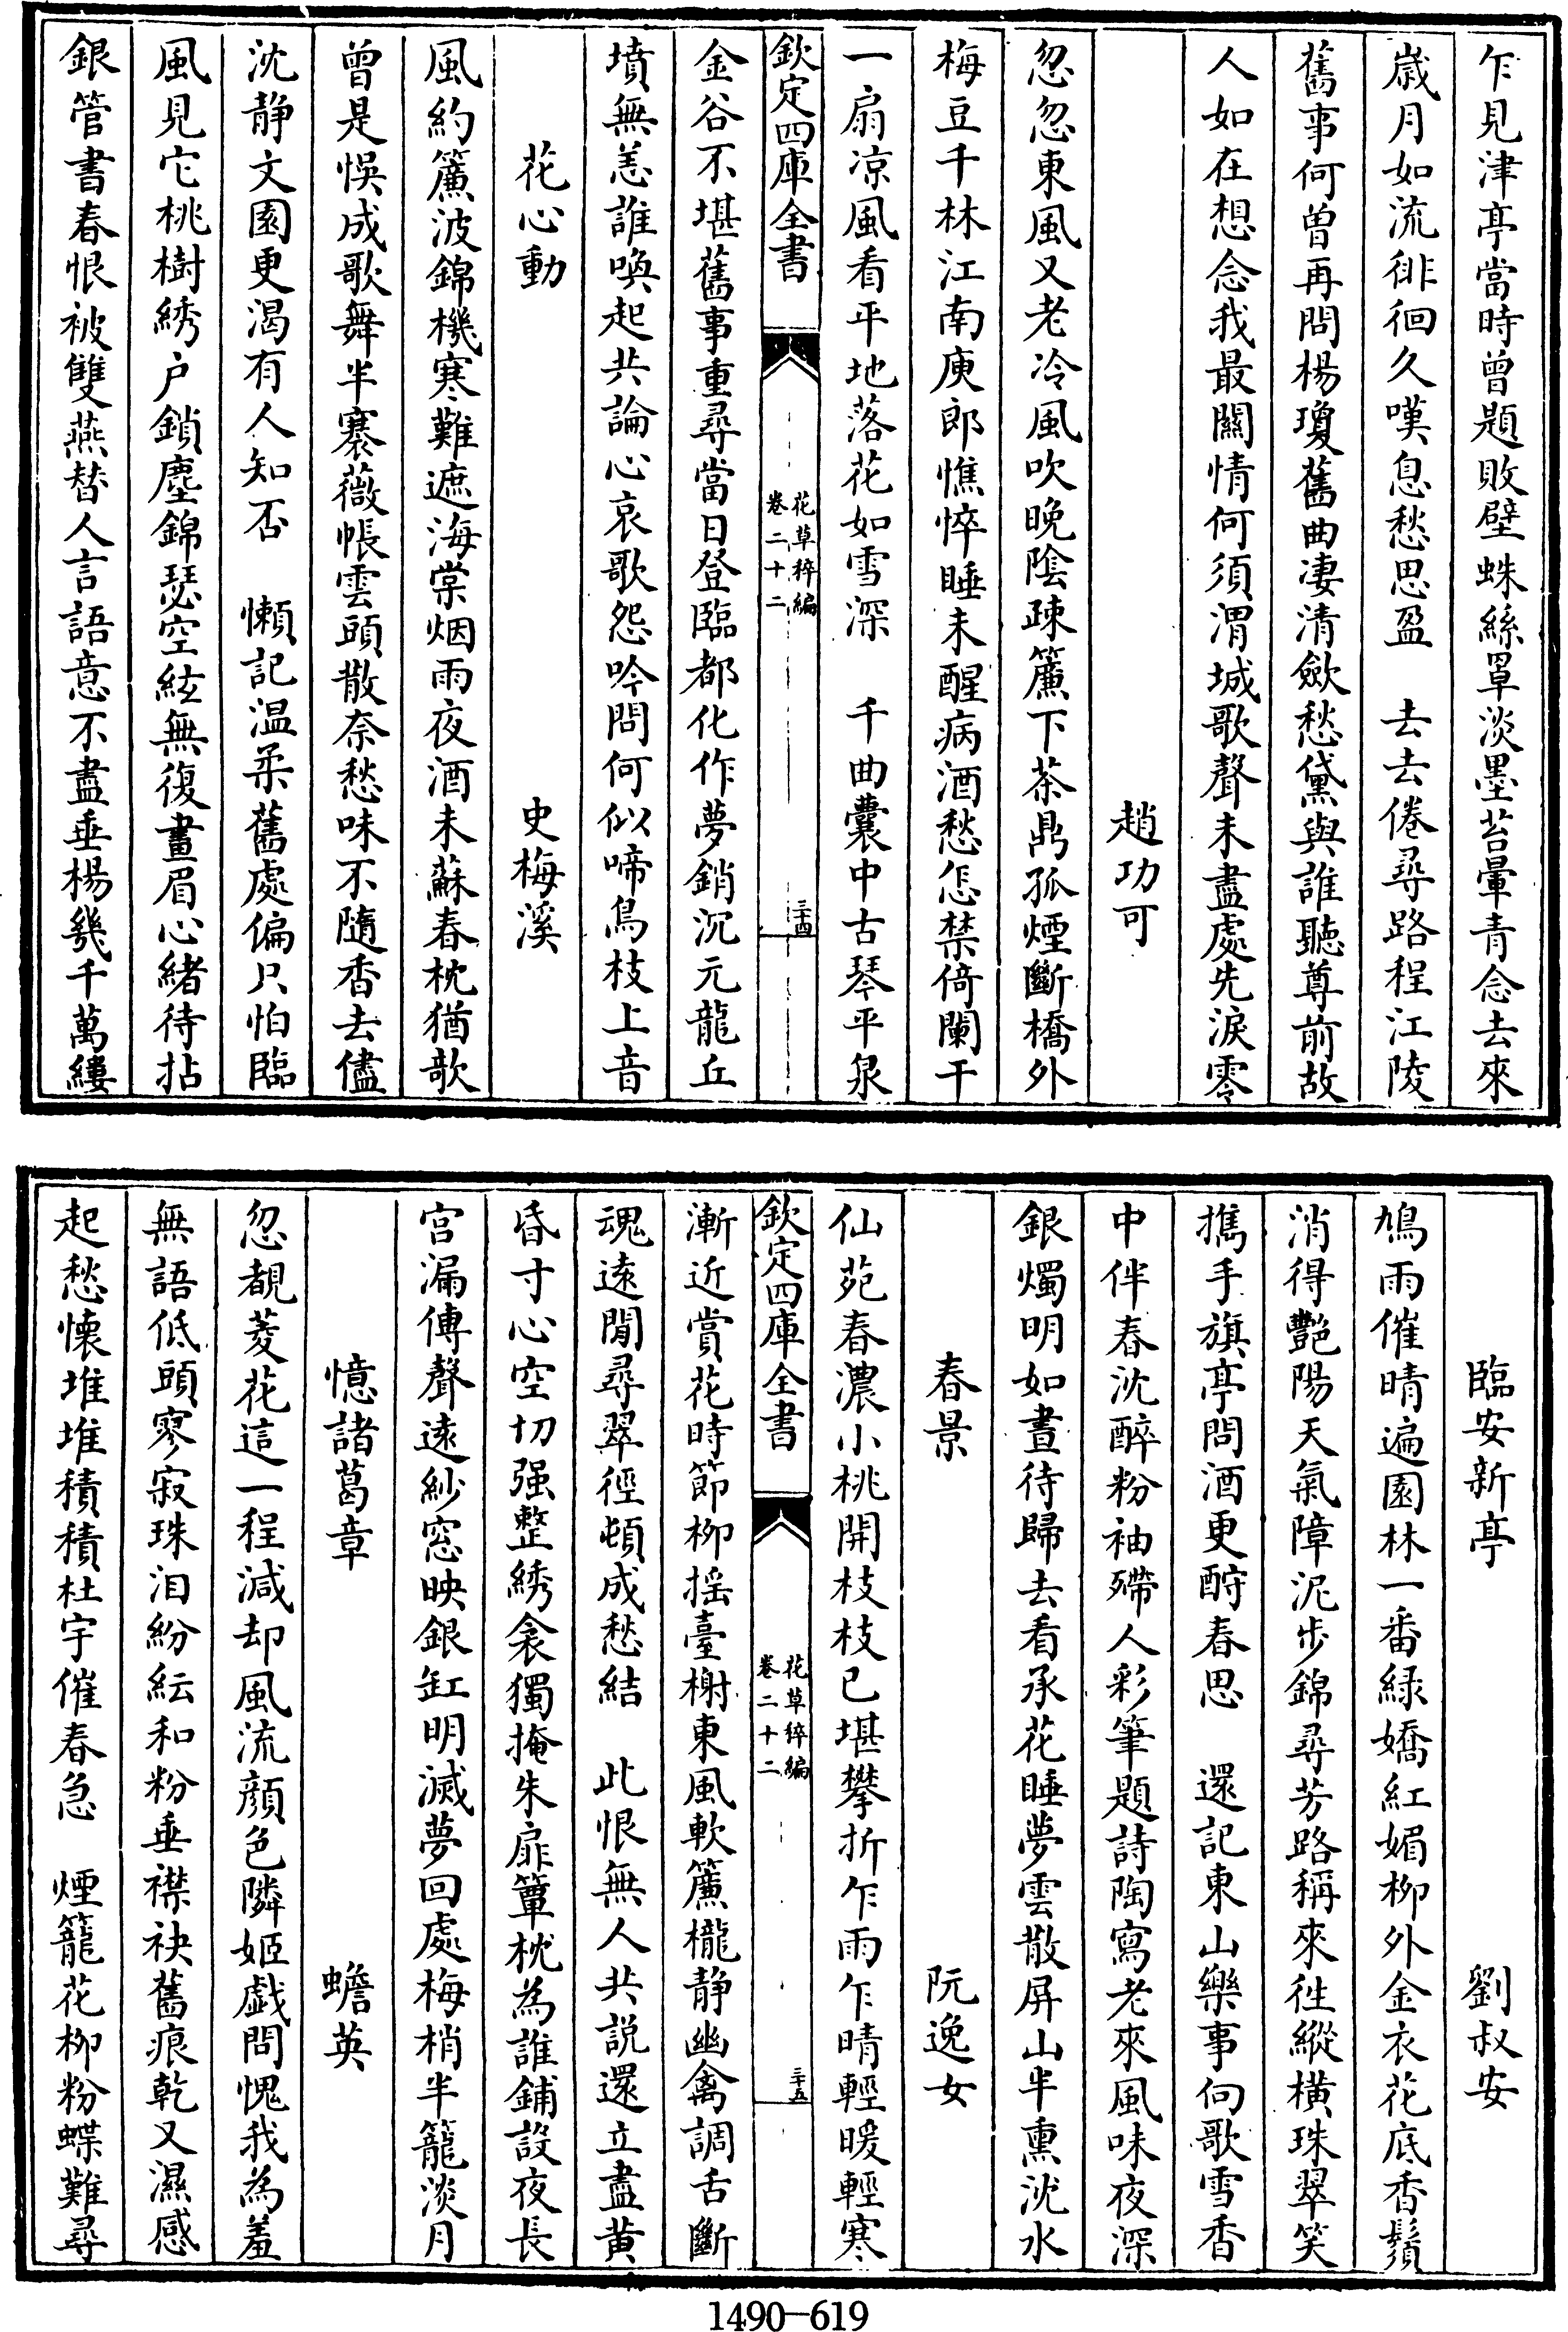 乍見津亭當時曾題敗壁蛛絲罩淡墨苔暈青念去來
歲月如流徘徊久嘆息愁思盈　去去倦尋路程江陵
舊事何曽再問楊瓊舊曲淒清斂愁黛與誰聽尊前故
人如在想念我最關情何須渭城歌聲未盡處先淚零
趙功可
忽忽東風又老冷風吹晚陰疎簾下茶鼎孤煙斷橋外
梅豆千林江南庾郎憔悴睡未醒病酒愁怎禁倚闌干
一扇凉風看平地落花如雪深　千曲囊中古琴平泉
欽定四庫全書
花草稡編
卷二十二
三十四
金谷不堪舊事重尋當日登臨都化作夢銷沉元龍丘
墳無恙誰喚起共論心哀歌怨吟問何似啼鳥枝上音
花心動　史梅溪
風約簾波錦機寒難遮海棠烟雨夜酒未蘇春枕猶欹
曾是悞成歌舞半褰薇帳雲頭散奈愁味不隨香去儘
沈静文園更渴有人知否　懶記温柔舊處偏只怕臨
風見它桃樹綉户鎖塵錦瑟空絃無復畫眉心緒待拈
銀管書春恨被雙燕替人言語意不盡垂楊幾千萬縷
臨安新亭　劉叔安
鳩雨催晴遍園林一番緑嬌紅媚柳外金衣花底香鬚
消得艷陽天氣障泥步錦尋芳路稱來徃縱橫珠翠笑
擕手旗亭問酒更酧春思　還記東山樂事向歌雪香
中伴春沈醉粉袖殢人彩筆題詩陶寫老來風味夜深
銀燭明如晝待歸去看承花睡夢雲散屏山半熏沈水
春景　阮逸女
仙苑春濃小桃開枝枝已堪攀折乍雨乍晴輕暖輕寒
欽定四庫全書
花草稡編
卷二十二
三十五
漸近賞花時節柳摇臺榭東風軟簾櫳静幽禽調舌斷
魂逺閒尋翠徑頓成愁結　此恨無人共説還立盡黄
昏寸心空切强整綉衾獨掩朱扉簟枕為誰鋪設夜長
宫漏傳聲逺紗窓映銀缸明滅夢回處梅梢半籠淡月
憶諸葛章　蟾英
忽覩菱花這一程減却風流顔色隣姬戲問愧我為羞
無語低頭寥寂珠泪紛紜和粉垂襟袂舊痕乾又濕感
起愁懷堆堆積積杜宇催春急　煙籠花柳粉蝶難尋
1490-619